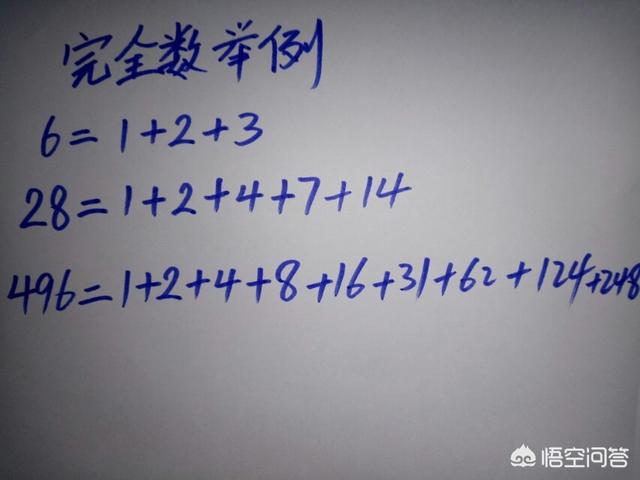 完全数举例
6=1+2+3
28=1+2+4+7+14
496=1+2+4+8+16+31+62+124+248
悟空问答